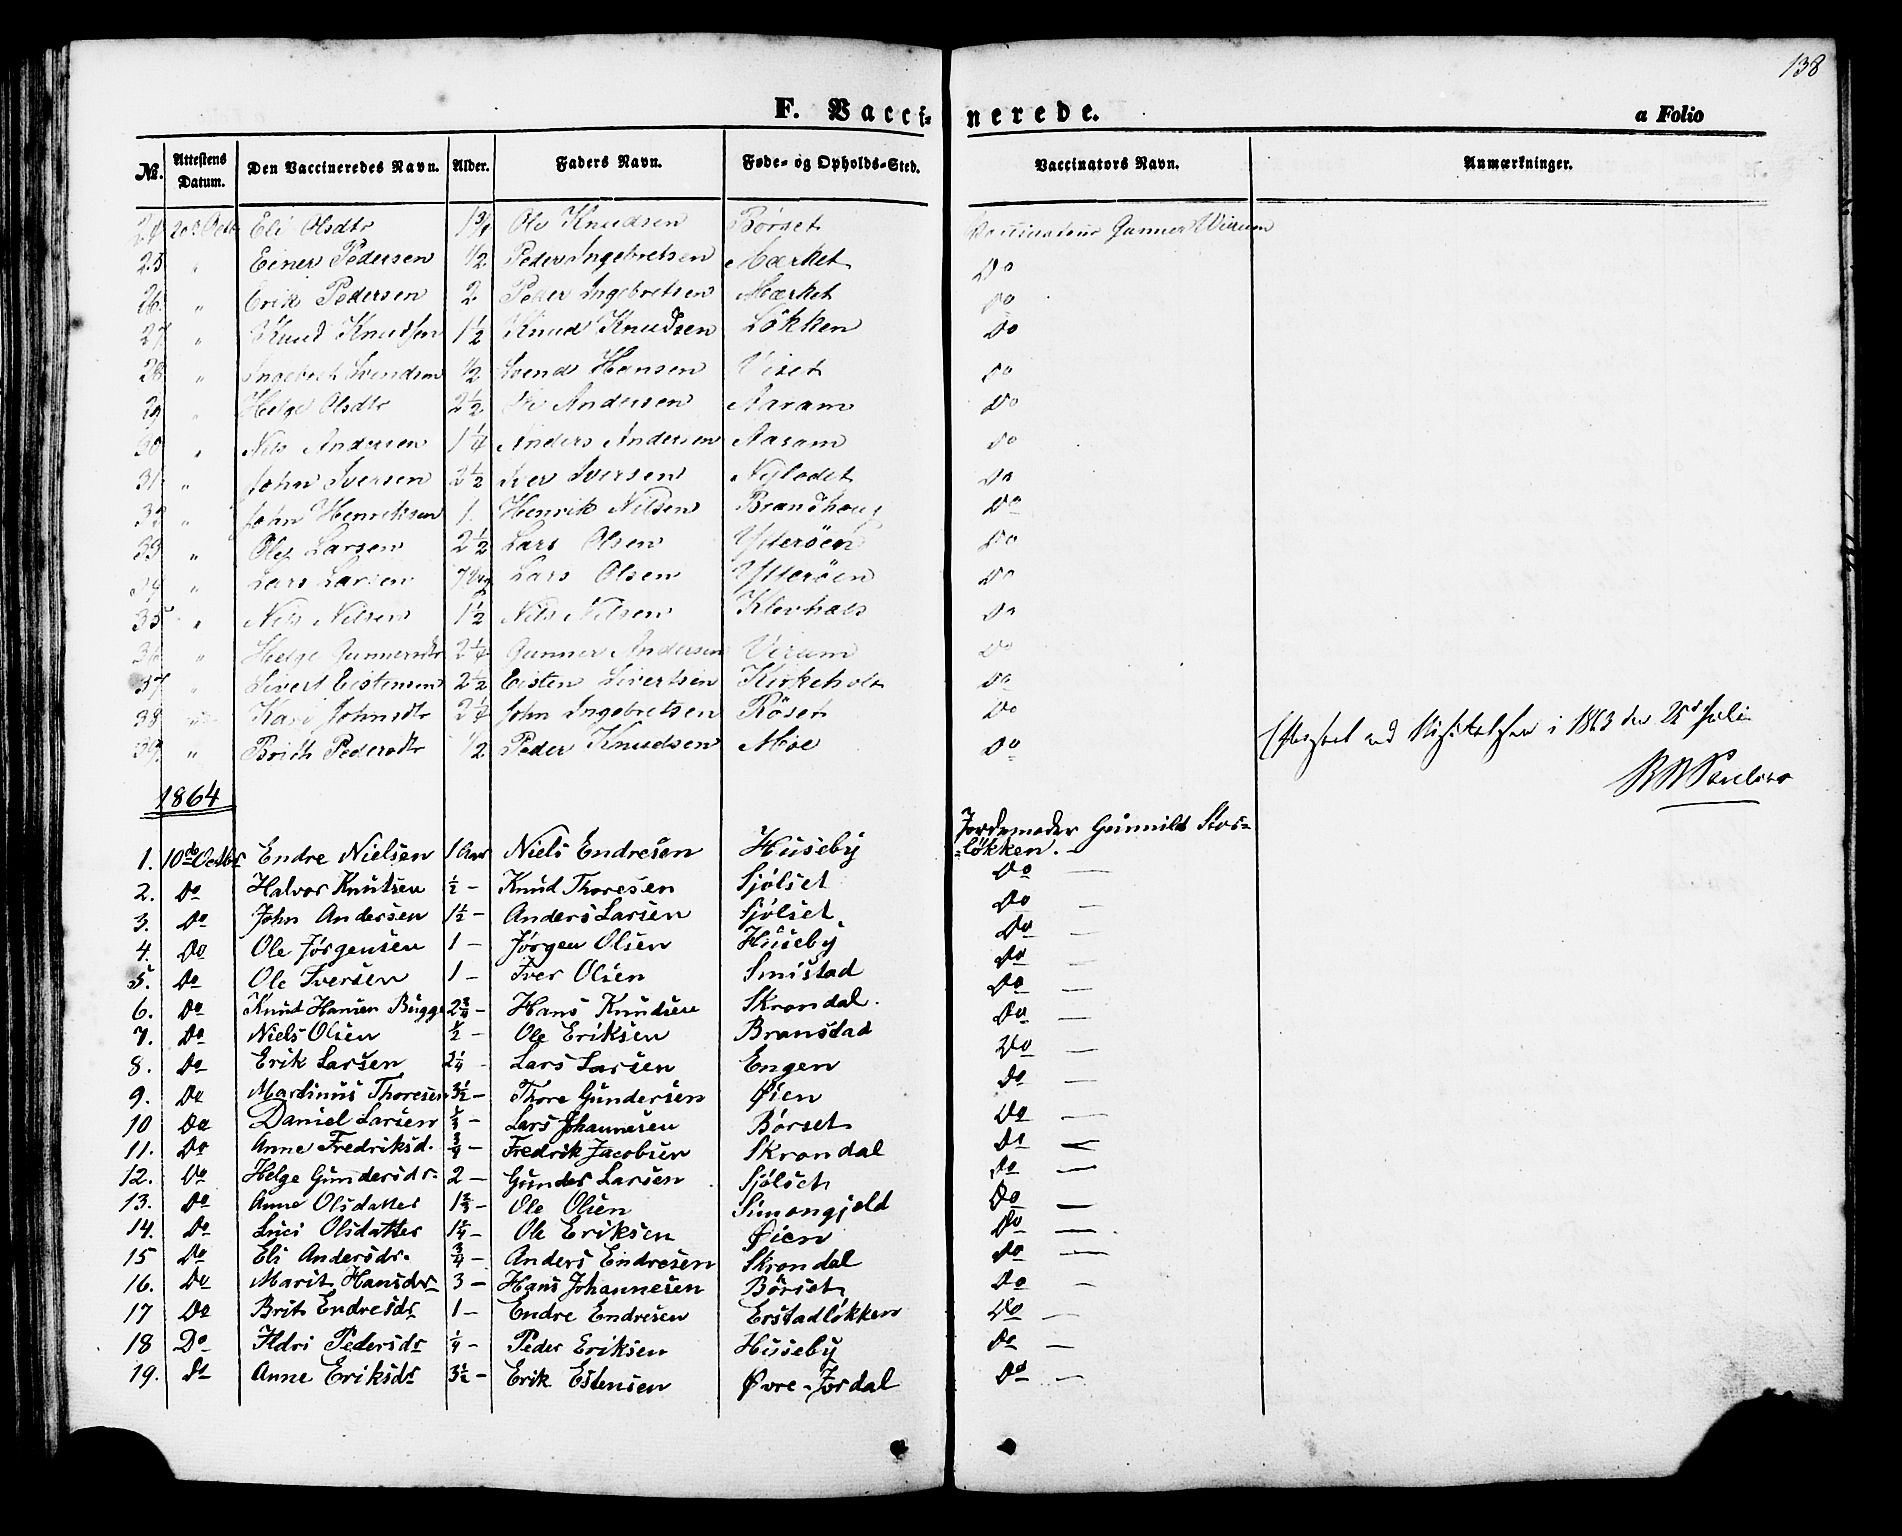 138
F. Vaccinerede.
a Folio
No. Attestens Datum. Den Vaccineredes Navn. Alder. Faders Navn. Føde- og Opholds-Sted. Vaccinators Navn. Anmærkninger.
24 20de Octb Eli Olsdtr 1 3/4 Ole Knudsen Börset Gunner Virum
25 " Einer Pedersen 1/2 Peder Ingebretsen Mærket Do
26. " Erik Pedersen 2 Peder Ingebretsen Mærket Do
27 " Knud Knudsen 1 1/2 Knud Knudsen Lökken Do
28 " Ingebret Svendsen 1/2 Svend Hansen Viset Do
29 " Helge Olsdtr 2 1/2 Andersen Aaram Do
30 " Nils Andersen 1 1/4 Anders Andersen Aaram Do
31 " John Iversen 2 1/2 Iver Iversen Nylödet Do
32 " John Henriksen 1. Henrik Nilsen Brandhoug Do
33 " Ole Larsen 2 1/2 Lars Olsen Ytteröen Do
34 " Lars Larsen Lars Olsen Ytteröen Do
35 " Nils Nilsen 1 1/2 Nils Nilsen Klevhals Do
36 " Helge Gunnersdtr 2 1/4 Gunner Andersen Virum Do
37. " Sivert Eistensen 2 1/2 Eisten Sivertsen Kirkeholt Do
38 " Kari Johnsdtr 2 1/4 John Ingebretsen Röset Do
39. " Brith Pedersdtr 1/2 Peder Knudsen Moe Do
i 1863 den Juli
1864
1. 10de Octbr Endre Nielsen 1 Aar Niels Endresen Huseby Jordemoder Gunnild Stor=
=lökken. -
2. Do Halvor Knutsen 1/2 - Knud Thoresen Sjölset Do —
3. Do John Andersen 1 1/2 - Anders Larsen Sjölset Do —
4. Do Ole Jørgensen 1 - Jørgen Olsen Huseby Do —
5. Do Ole Iversen 1 - Iver Olsen Smistad Do —
6. Do Knut Hansen Bugge 2 3/4 - Hans Knudsen Skrondal. Do —
7. Do Niels Olsen 1/2 - Ole Eriksen Branstad Do —
8. Do Erik Larsen 2 1/4 - Lars Larsen Engen Do —
9. Do Martinus Thoresen 3 1/2 - Thore Gundersen Øien Do —
10 Do Daniel Larsen - Lars Johannesen Börset Do —
11. Do Anne Fredriksd. 3/4 - Fredrik Jacobsen Skrondal Do —
12. Do Helge Gundersdr 2 - Gunder Larsen Sjölset Do —
13. Do Anne Olsdatter - Ole Olsen Simongjeld Do —
14. Do Olsdatter - Ole Eriksen Øien Do —
15 Do Eli Andersdr. 3/4 - Anders Endresen Skrondal Do —
16. Do Marit Hansdr 3 - Hans Johannesen Börset Do —
17 Do Brit Endresdr 1 - Endre Endresen Erstadlökken Do —
18 Do Ildri Pedersdr 1/4 - Peder Eriksen Huseby Do —
19. Do Anne Eriksdr 3 1/2 - Erik Estensen Øvre-Jordal Do —